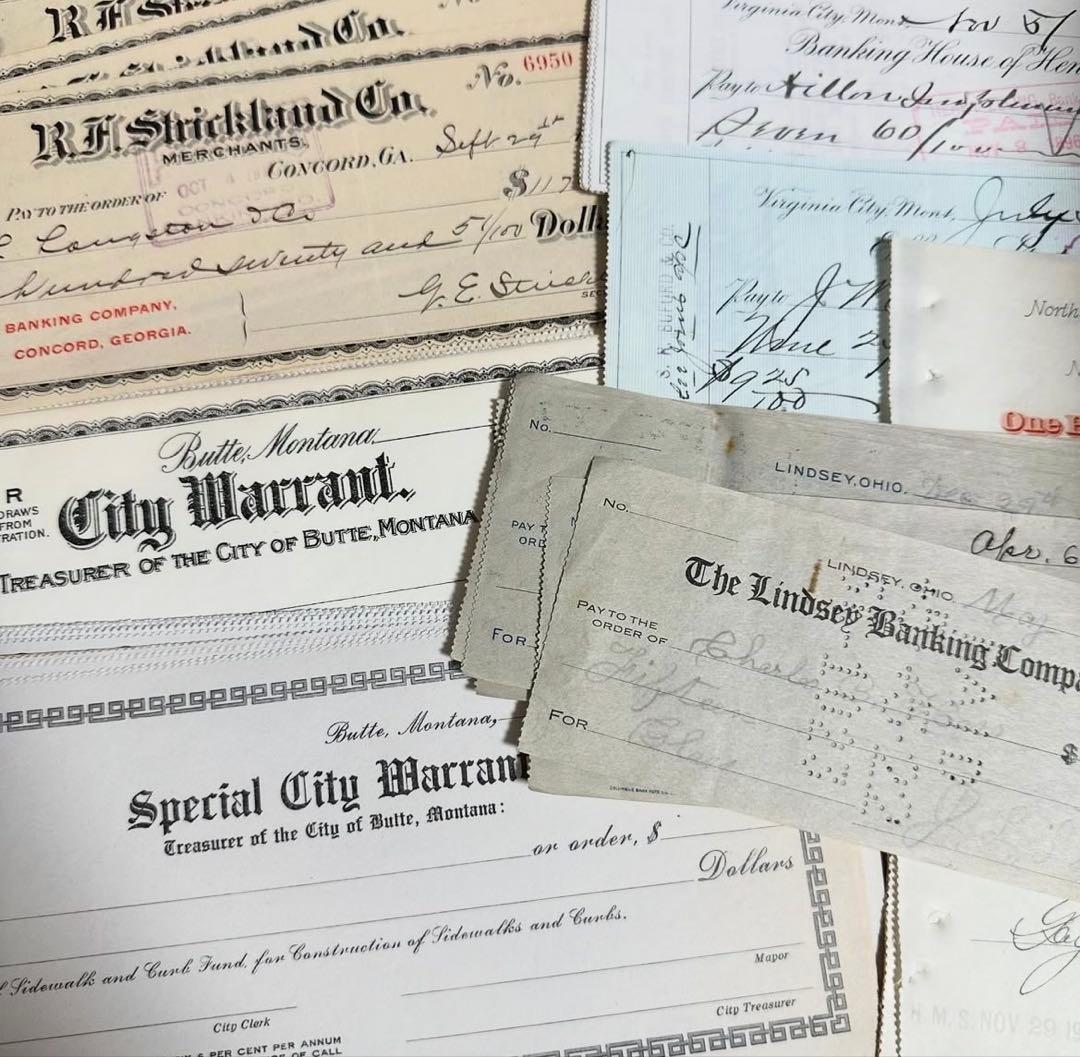 R.F. Str
Strickland Co.
No. 6950
R.F. Strickland Co.
MERCHANTS,
CONCORD, GA. Sept 29th
OCT 4
PAY TO THE ORDER OF
$117
Langston & Co
Hundred seventy and 51/100 Doll
G. E. Strick
BANKING COMPANY,
CONCORD, GEORGIA.
Virginia City, Mont
Banking House of Hen
Pay to
Seven 60/100
Virginia City, Mont. July
Pay to J. M
Nine 2
$9 25
100
North
One
Butte, Montana,
R
DRAWS
FROM
RATION.
City Warrant.
TREASURER OF THE CITY OF BUTTE, MONTANA
No.
LINDSEY, OHIO.
PAY T
ORD
FOR
Apr. 6
No.
LINDSEY, OHIO. May
The Lindsey Banking Compa
PAY TO THE
ORDER OF
Charle
Fifteen
$
FOR
Butte, Montana,
Special City Warran
Treasurer of the City of Butte, Montana:
or order, $
Dollars
Sidewalk and Curb Fund, for Construction of Sidewalks and Curbs.
Mayor
City Clerk
City Treasurer
PER CENT PER ANNUM
OF CALL
H. M. S. NOV 29 19